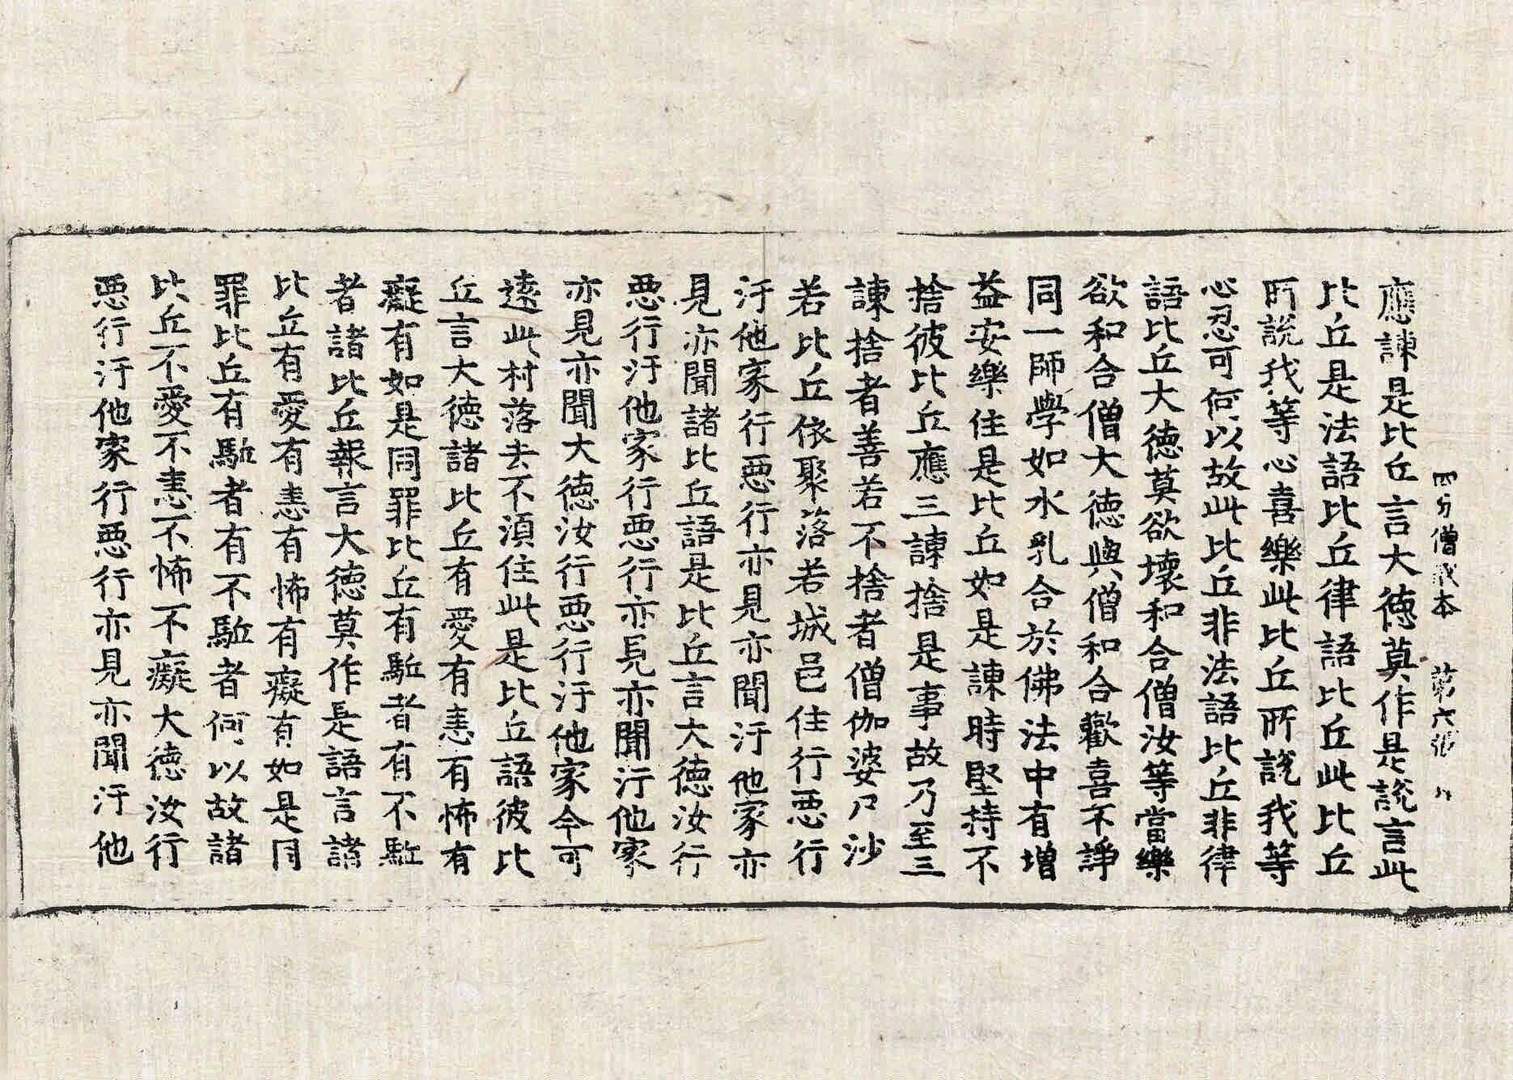 四分僧戒本　第六張
應諫是比丘言大德莫作是說言此
比丘是法語比丘律語比丘此比丘
所說我等心喜樂此比丘所說我等
心忍可何以故此比丘非法語比丘非律
語比丘大德莫欲壞和合僧汝等當樂
欲和合僧大德與僧和合歡喜不諍
同一師學如水乳合於佛法中有增
益安樂住是比丘如是諫時堅持不
捨彼比丘應三諫捨是事故乃至三
諫捨者善若不捨者僧伽婆尸沙
若比丘依聚落若城邑住行惡行
汙他家行惡行亦見亦聞汙他家亦
見亦聞諸比丘語是比丘言大德汝行
惡行汙他家行惡行亦見亦聞汙他家
亦見亦聞大德汝行惡行汙他家今可
遠此村落去不須住此是比丘語彼比
丘言大德諸比丘有愛有恚有怖有
癡有如是同罪比丘有駈者有不駈
者諸比丘報言大德莫作是語言諸
比丘有愛有恚有怖有癡有如是同
罪比丘有駈者有不駈者何以故諸
比丘不愛不恚不怖不癡大德汝行
惡行汙他家行惡行亦見亦聞汙他